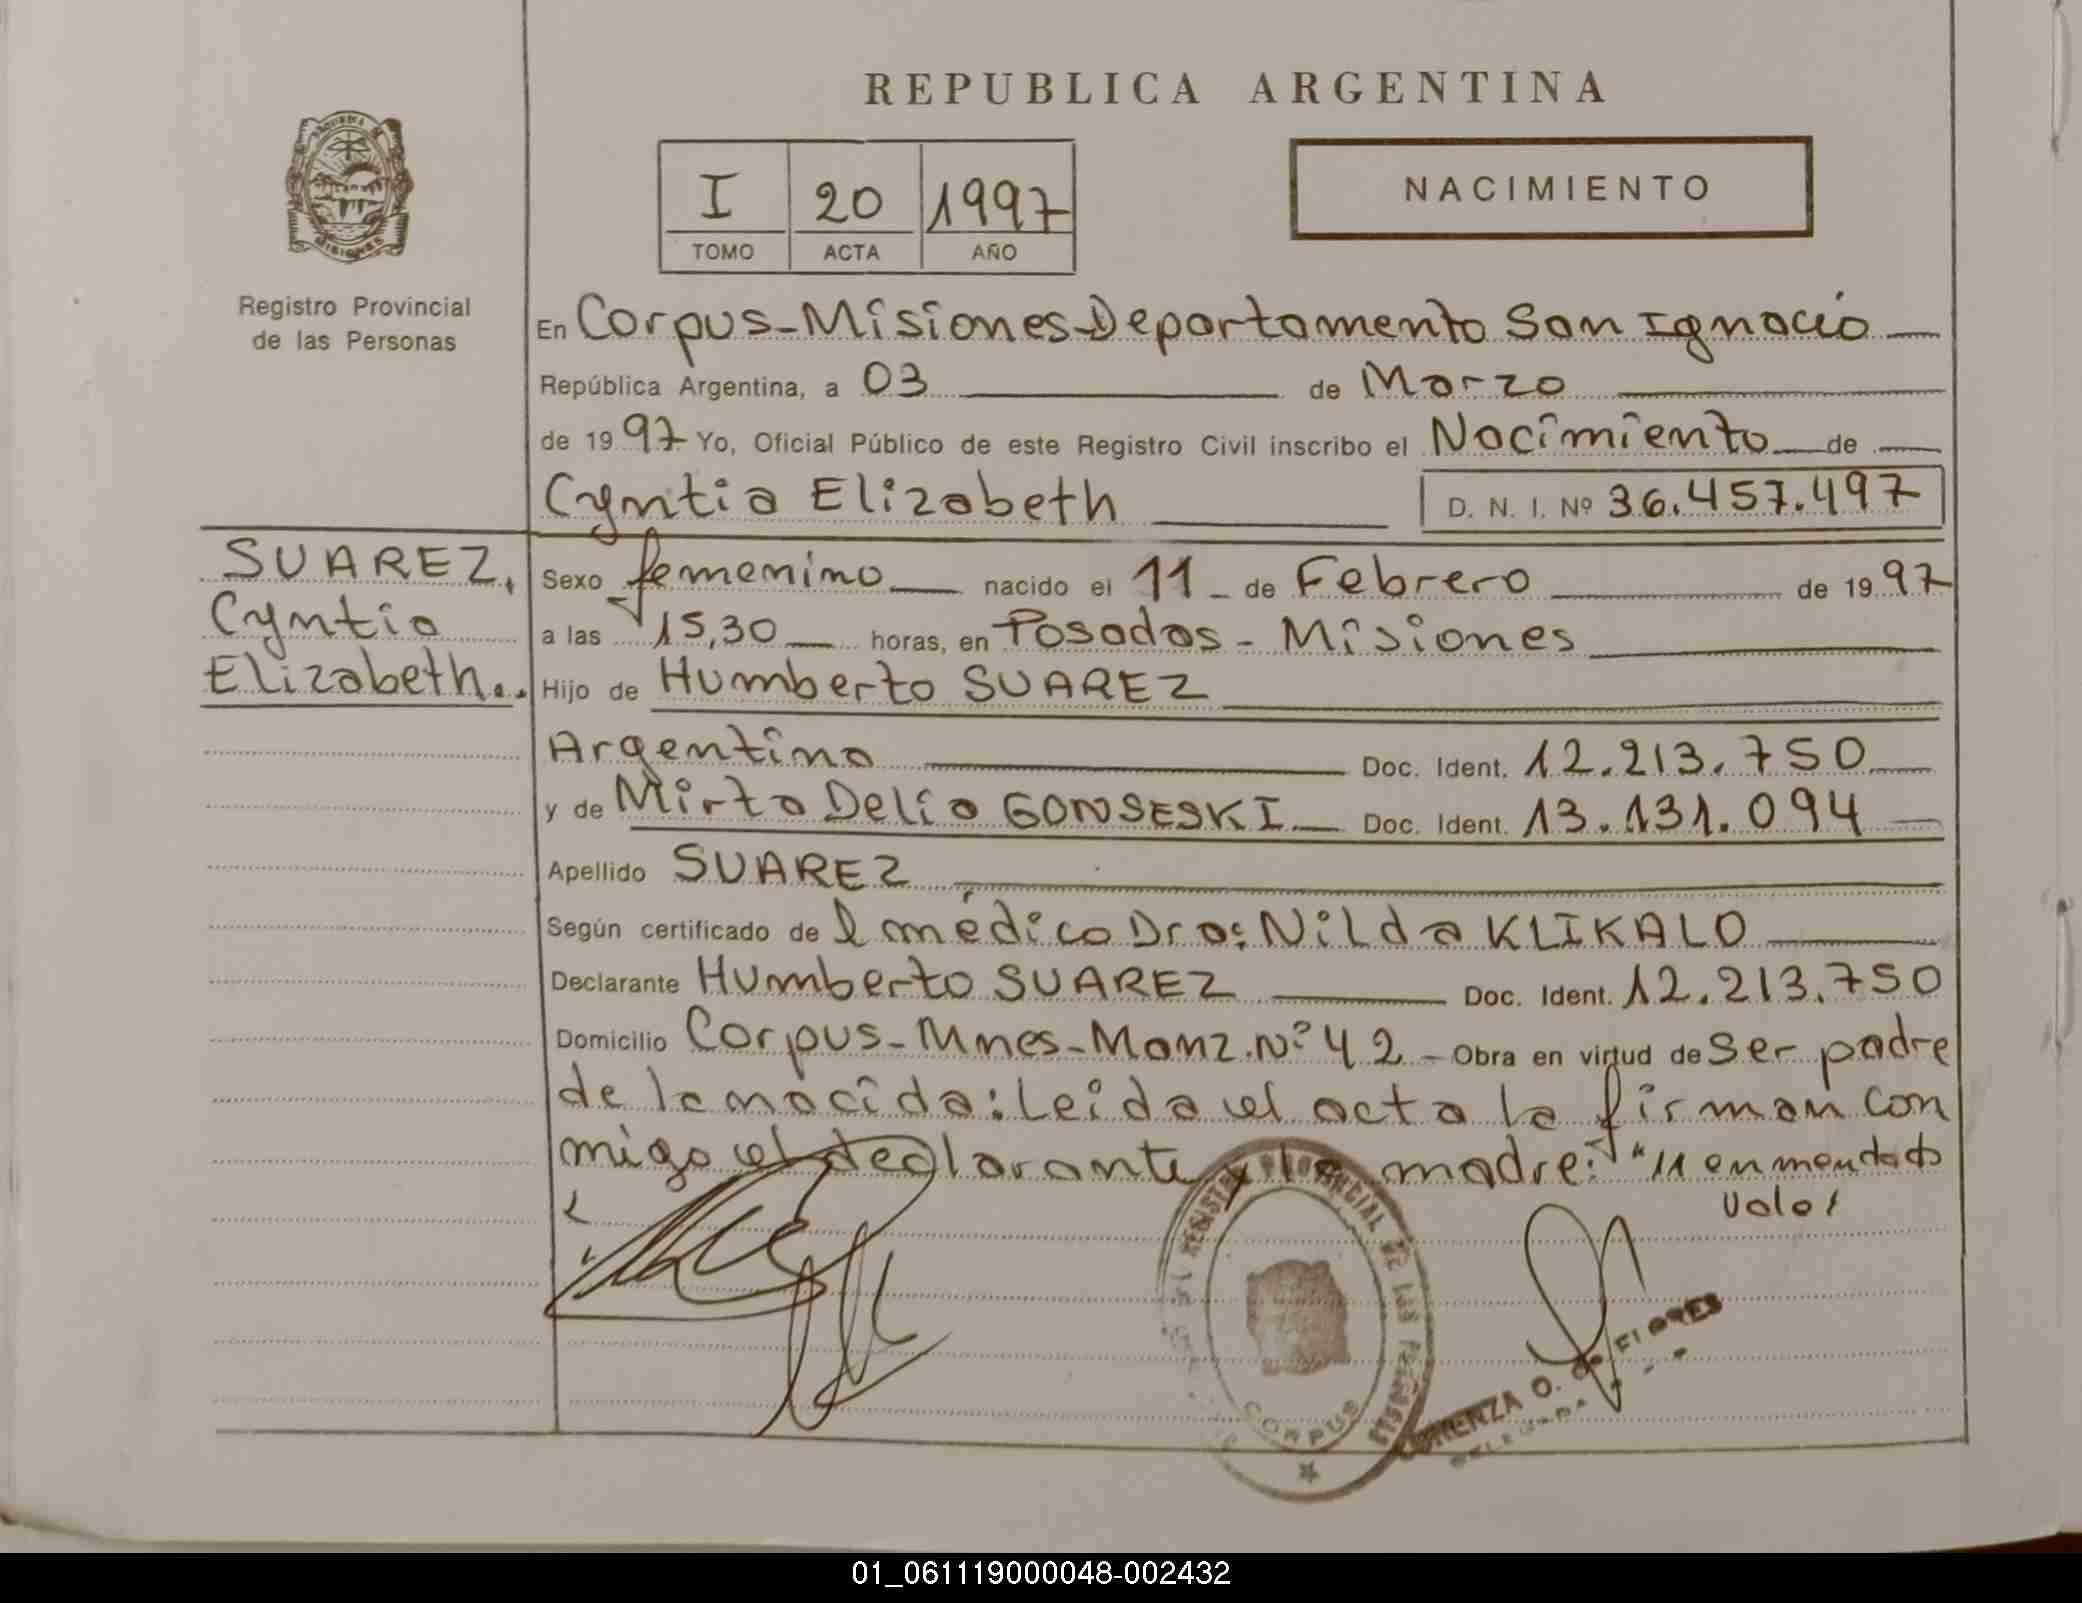 REPUBLICA ARGENTINA
NACIMIENTO
I 20 1997
TOMO ACTA AÑO
MISIONES
Registro Provincial
de las Personas
En Corpus-Misiones-Departamento San Ignacio
República Argentina, a 03 de Marzo
de 1997 Yo, Oficial Público de este Registro Civil inscribo el Nacimiento de
Cyntia Elizabeth D. N. I. Nº 36.457.497
SUAREZ,
Cyntia
Elizabeth..
Sexo femenino nacido el 11 de Febrero de 1997
a las 15,30 horas, en Posadas - Misiones
Hijo de Humberto SUAREZ
Argentino Doc. Ident. 12.213.750
y de Mirta Delia GONSESKI Doc. Ident. 13.131.094
Apellido SUAREZ
Según certificado de l médico Dra: Nilda KLIKALO
Declarante Humberto SUAREZ Doc. Ident. 12.213.750
Domicilio Corpus-Mnes-Manz.Nº 42 - Obra en virtud de ser padre
de la nacida: Leida el acta la firman con
migo el declarante y la madre: "11 enmendado
vale/
REGISTRO PROVINCIAL DE LAS PERSONAS
CORPUS
LORENZA O. de FLORES
DELEGADA
01_061119000048-002432